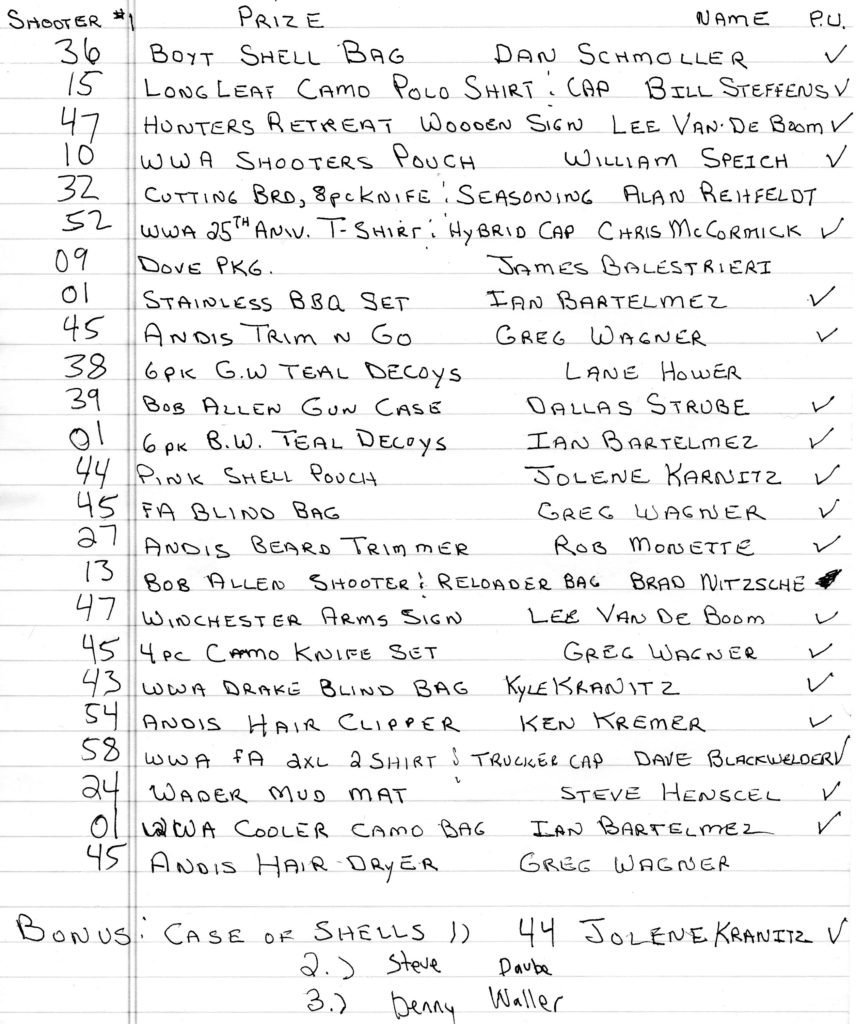 SHOOTER #1 PRIZE NAME P.U.
36 BOYT SHELL BAG DAN SCHMOLLER ✓
15 LONG LEAF CAMO POLO SHIRT & CAP BILL STEFFENS ✓
47 HUNTERS RETREAT WOODEN SIGN LEE VAN-DE BOOM ✓
10 WWA SHOOTERS POUCH WILLIAM SPEICH ✓
32 CUTTING BRD, 8pc KNIFE & SEASONING ALAN REHFELDT
52 WWA 25TH ANIV. T-SHIRT & HYBRID CAP CHRIS McCORMICK ✓
09 DOVE PKG. JAMES BALESTRIERI
01 STAINLESS BBQ SET IAN BARTELMEZ ✓
45 ANDIS TRIM N GO GREG WAGNER ✓
38 6PK G.W TEAL DECOYS LANE HOWER
39 BOB ALLEN GUN CASE DALLAS STRUBE ✓
01 6PK B.W. TEAL DECOYS IAN BARTELMEZ ✓
44 PINK SHELL POUCH JOLENE KARNITZ ✓
45 FA BLIND BAG GREG WAGNER ✓
27 ANDIS BEARD TRIMMER ROB MONETTE ✓
13 BOB ALLEN SHOOTER & RELOADER BAG BRAD NITZSCHE
47 WINCHESTER ARMS SIGN LEE VAN DE BOOM ✓
45 4PC CAMO KNIFE SET GREG WAGNER ✓
43 WWA DRAKE BLIND BAG KYLE KRANITZ ✓
54 ANDIS HAIR CLIPPER KEN KREMER ✓
58 WWA FA 2XL 2 SHIRT & TRUCKER CAP DAVE BLACKWELDER ✓
24 WADER MUD MAT STEVE HENSCEL ✓
01 WWA COOLER CAMO BAG IAN BARTELMEZ ✓
45 ANDIS HAIR DRYER GREG WAGNER
BONUS: CASE OF SHELLS 1) 44 JOLENE KRANITZ ✓
2.) Steve Daube
3.) Denny Waller